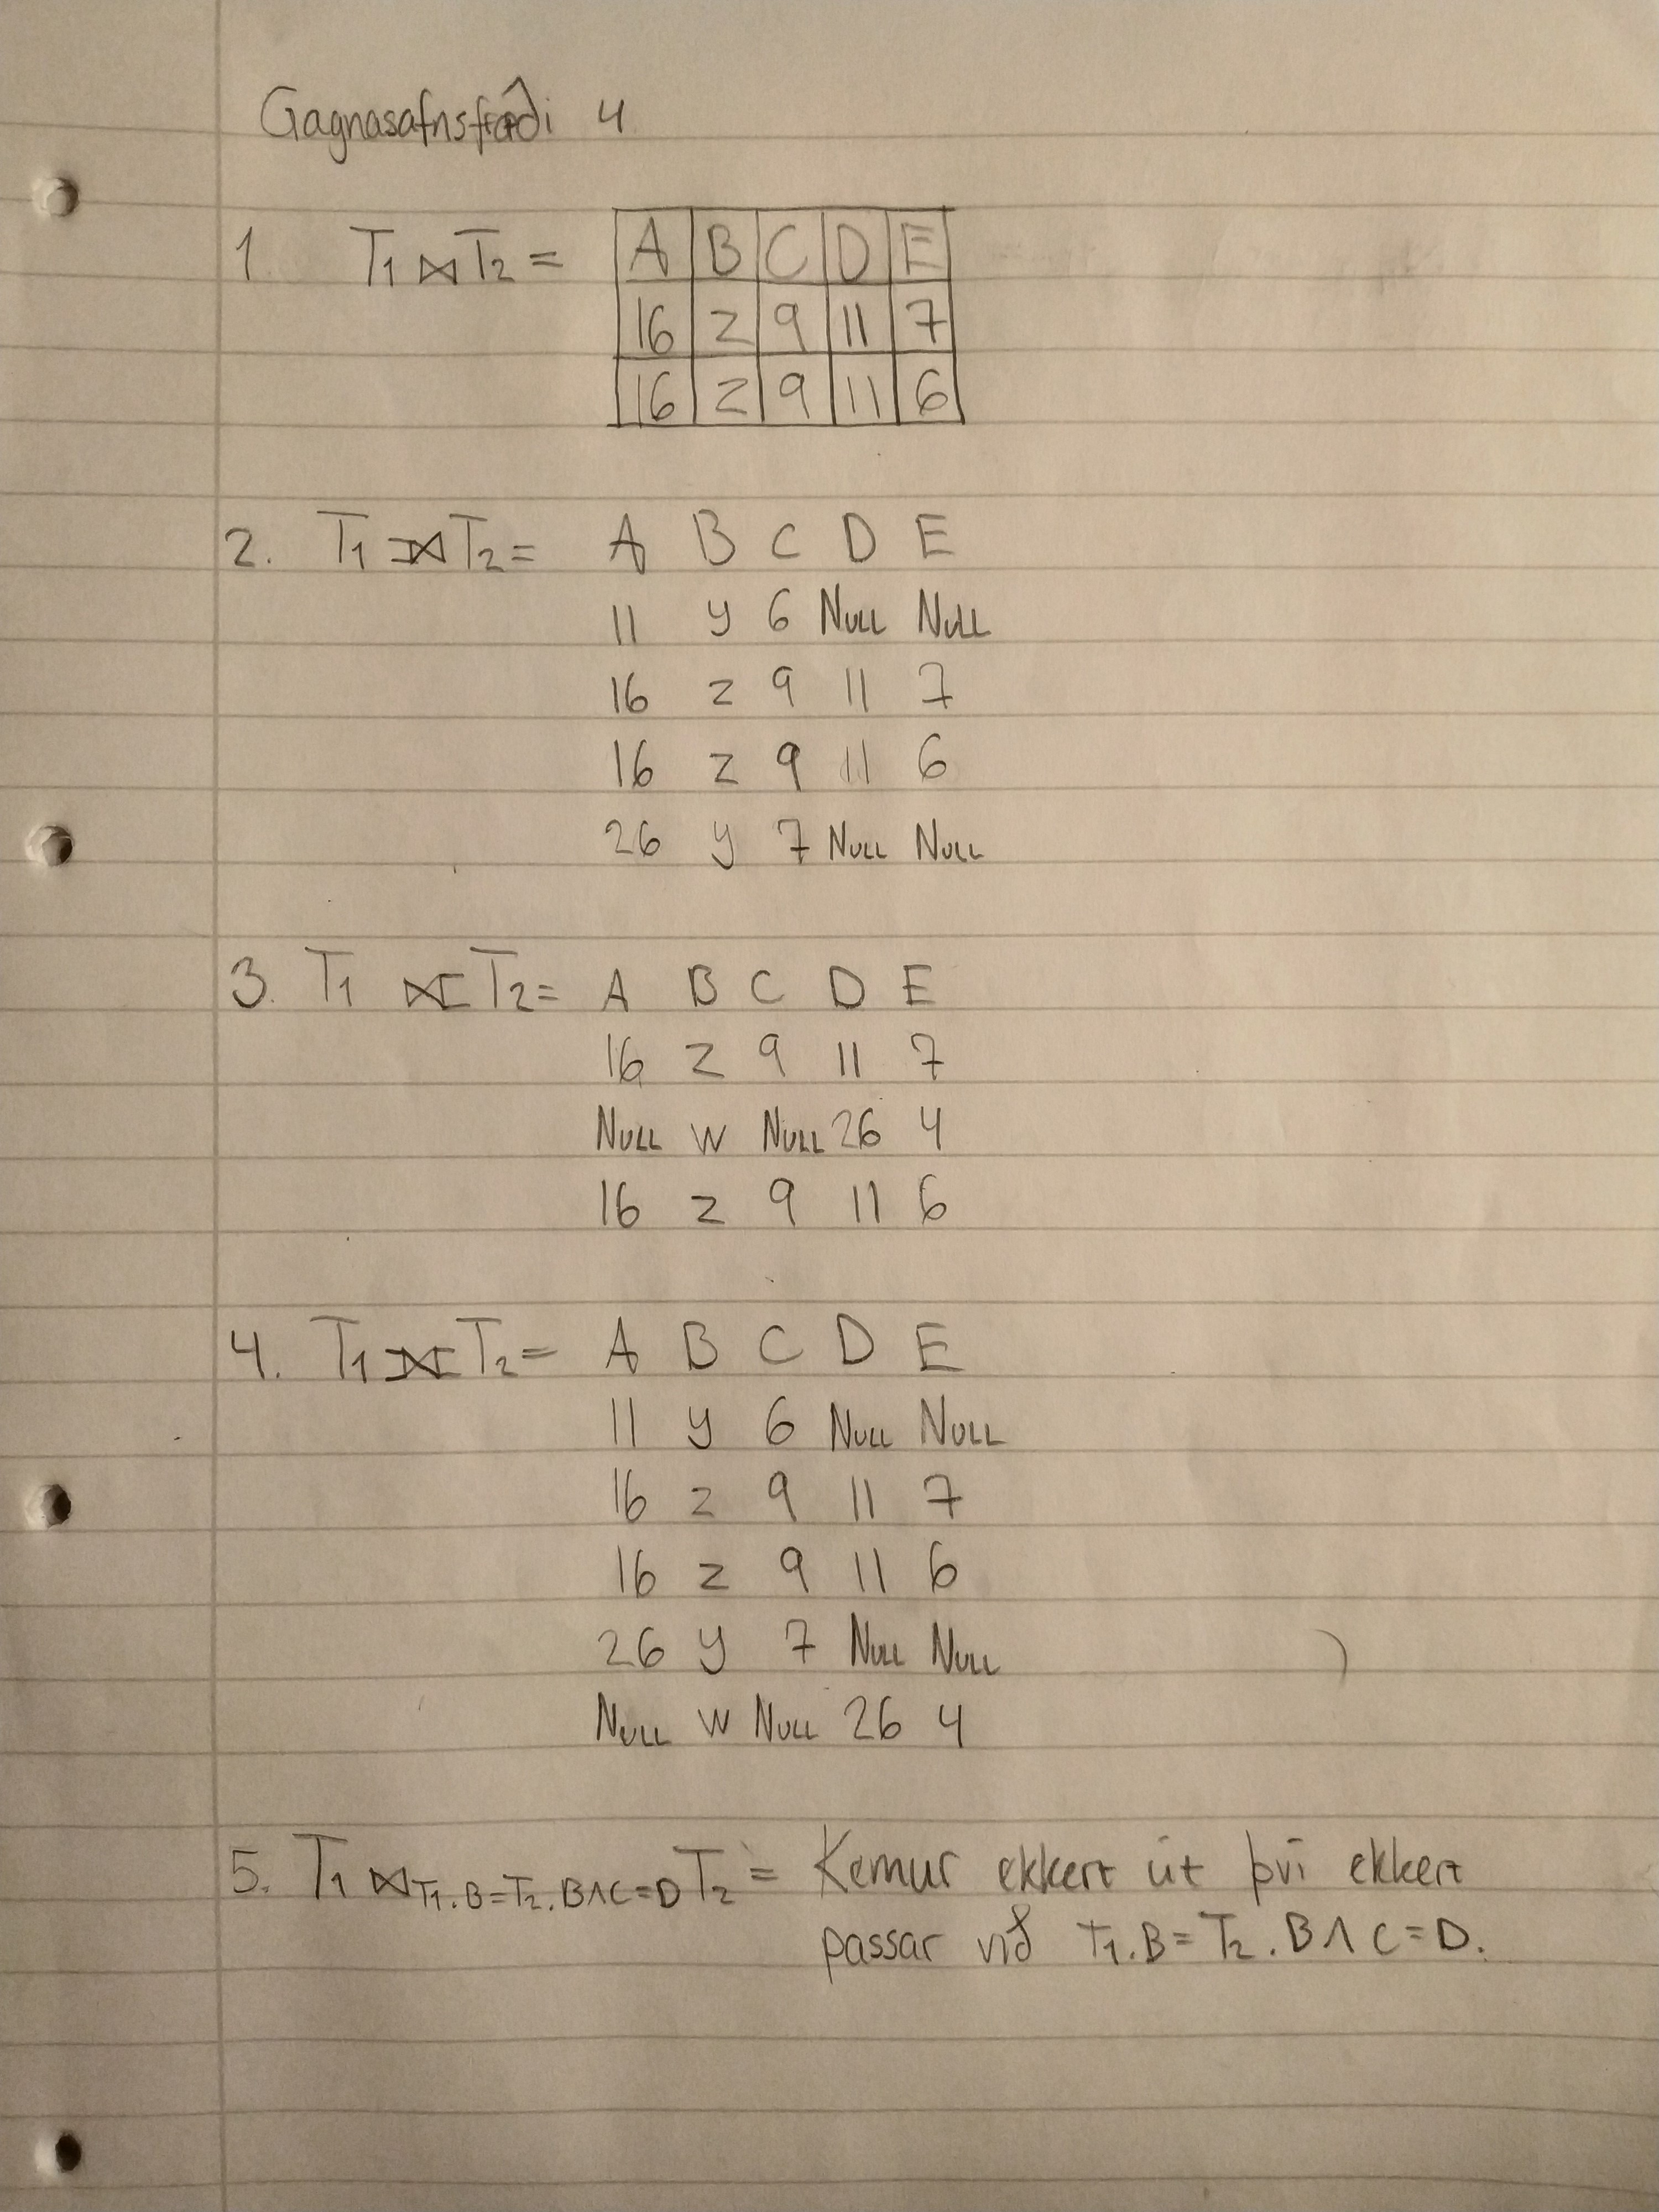 Gagnasafnsfræði 4
1. T₁ ⋈ T₂ = A B C D E
16 z 9 11 7
16 z 9 11 6
2. T₁ ⟕ T₂ = A B C D E
11 y 6 NULL NULL
16 z 9 11 7
16 z 9 11 6
26 y 7 NULL NULL
3. T₁ ⟖ T₂ = A B C D E
16 z 9 11 7
NULL w NULL 26 4
16 z 9 11 6
4. T₁ ⟗ T₂ = A B C D E
11 y 6 NULL NULL
16 z 9 11 7
16 z 9 11 6
26 y 7 NULL NULL
NULL w NULL 26 4
5. T₁ ⋈ T₁.B=T₂.B∧C=D T₂ = Kemur ekkert út því ekkert
passar við T₁.B=T₂.B∧C=D.